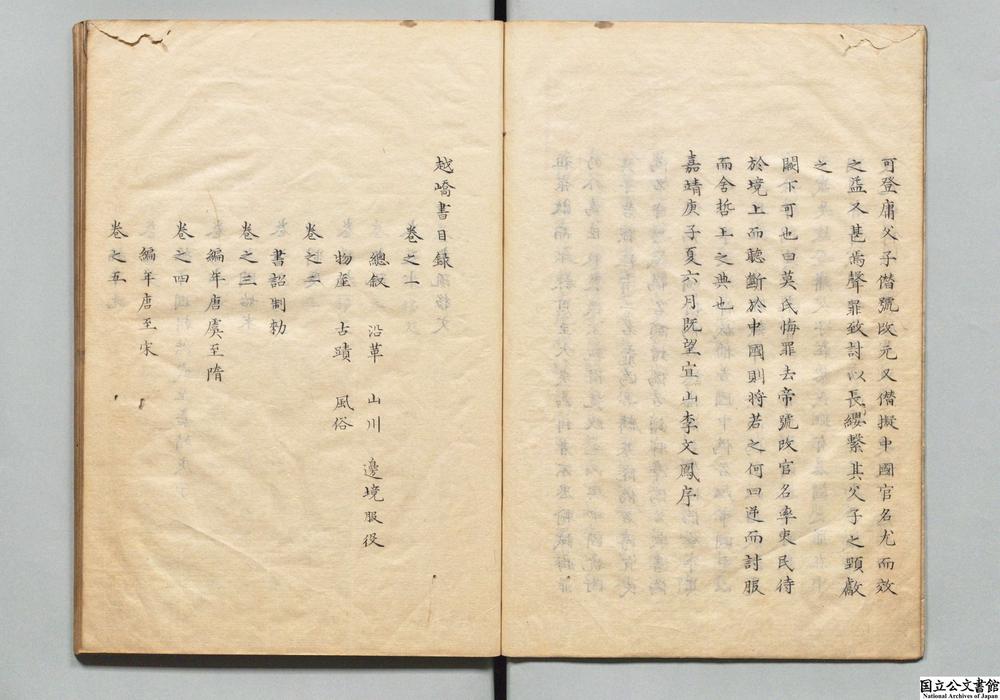 可登庸父子僭號改元又僭擬中國官名尤而效
之益又甚焉聲罪致討以長纓繫其父子之頸獻
之
闕下可也曰莫氏悔罪去帝號改官名率夷民待
於境上而聽斷於中國則將若之何曰逆而討服
而舍哲王之典也
嘉靖庚子夏六月既望宜山李文鳳序
越嶠書目録
卷之一
總叙 沿革 山川 邊境服役
物産 古蹟 風俗
卷之二
書詔制勑
卷之三
編年唐虞至隋
卷之四
編年唐至宋
卷之五
国立公文書館
National Archives of Japan